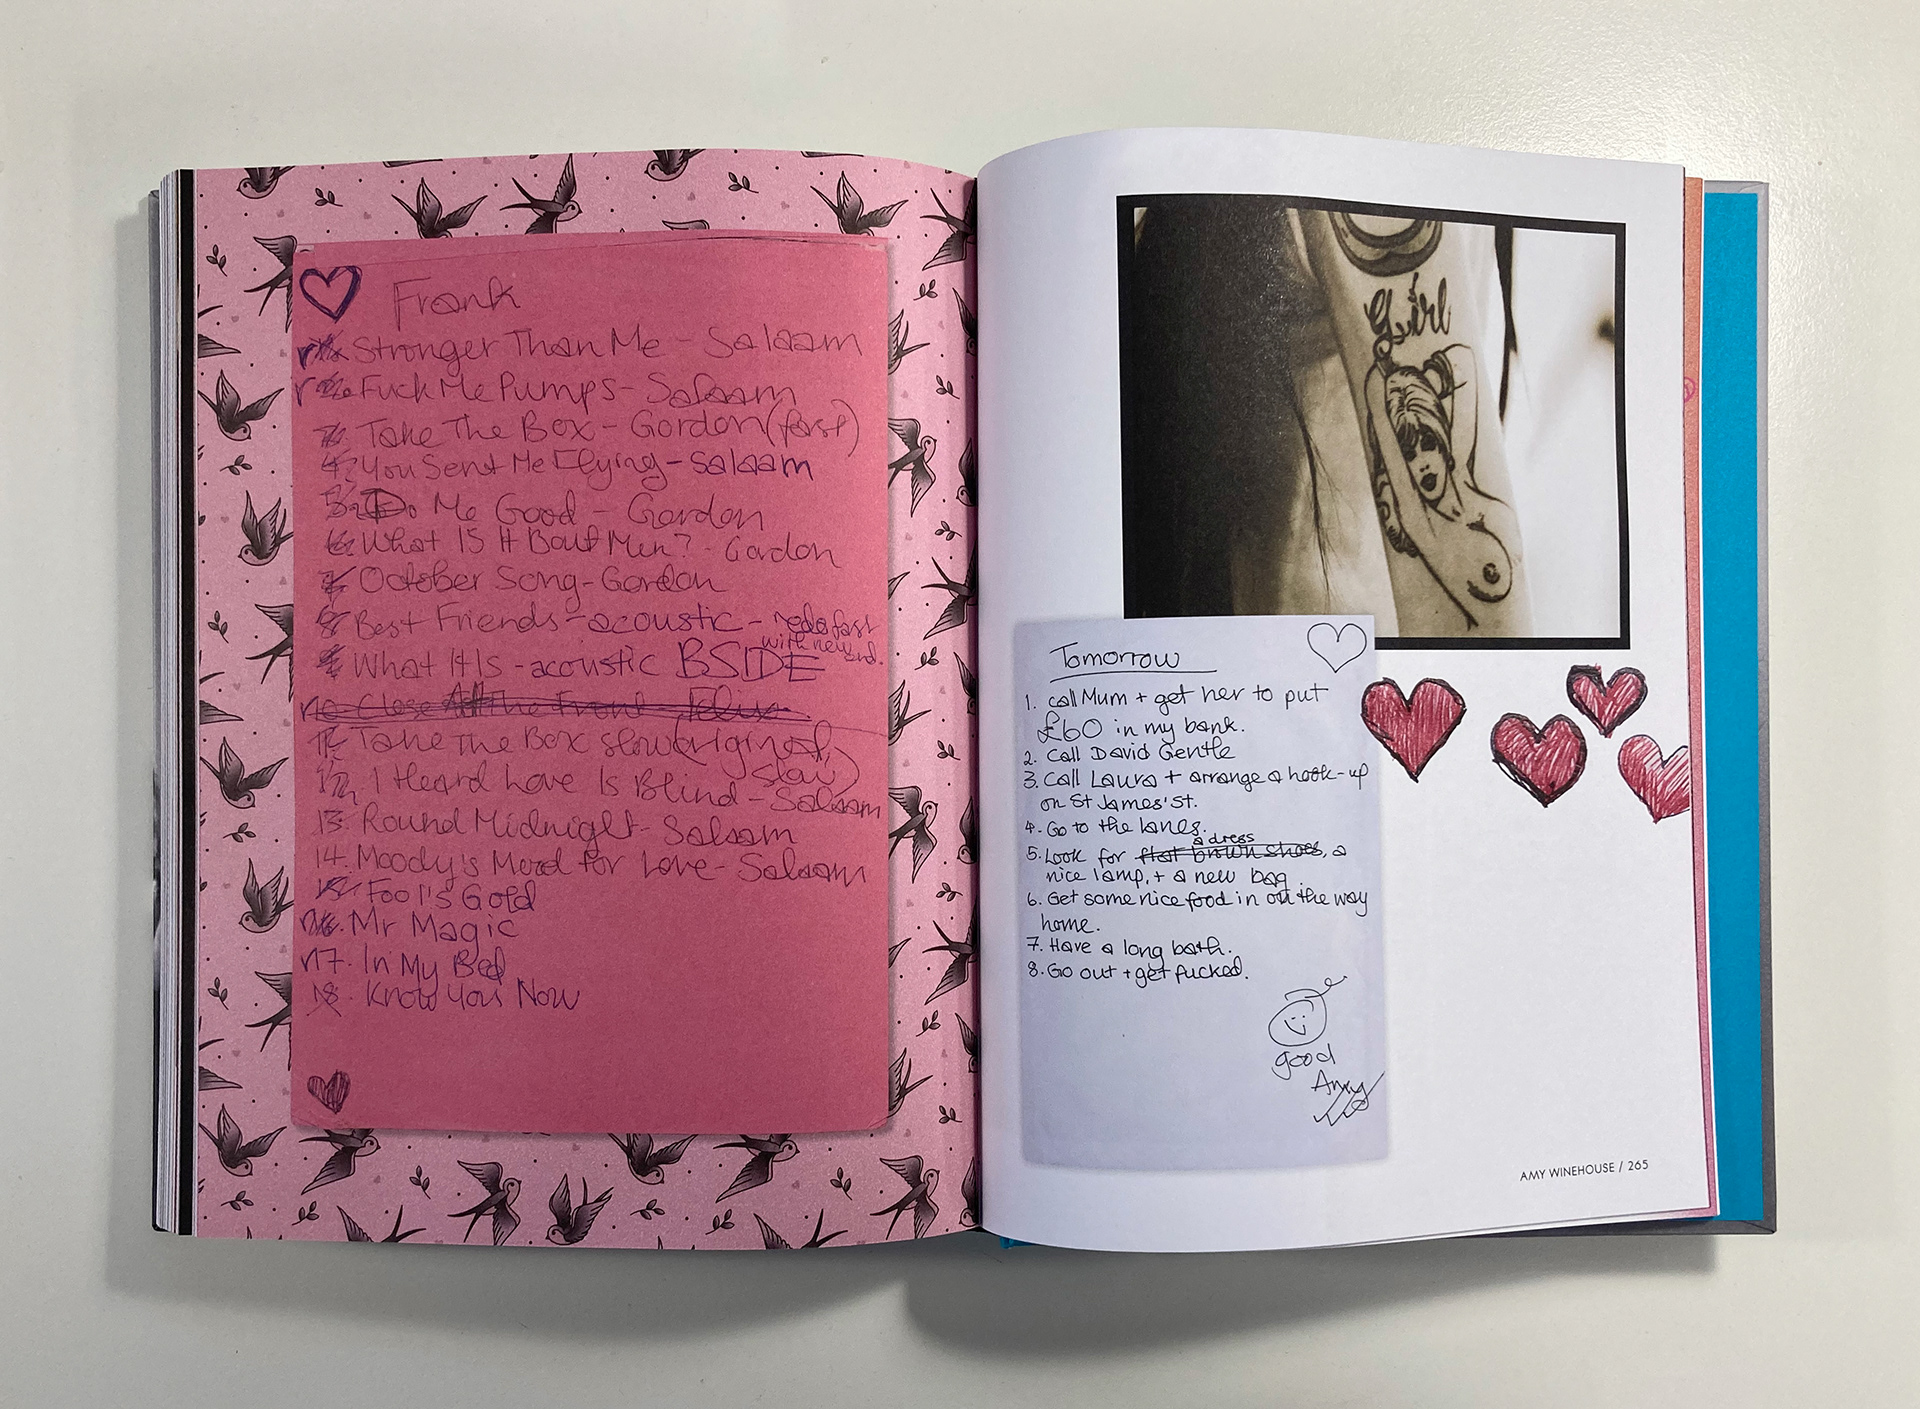 Frank
Stronger Than Me - Salaam
Fuck Me Pumps - Salaam
Take The Box - Gordon (fast)
4. You Sent Me Flying - Salaam
5. Do Me Good - Gordon
6. What Is It Bout Men? - Gordon
7. October Song - Gordon
8. Best Friends - acoustic - redo fast
with new end.
What It Is - acoustic BSIDE
10 Close The Front - Felix
11. Take The Box slow (original,
slow)
12. I Heard Love Is Blind - Salaam
13. Round Midnight - Salaam
14. Moody's Mood for Love - Salaam
15. Fool's Gold
16. Mr Magic
17. In My Bed
18. Know You Now
Girl
Tomorrow
1. call Mum + get her to put
£60 in my bank.
2. Call David Gentle
3. Call Laura + arrange a hook-up
on St James' St.
4. Go to the lanes.
a dress
5. Look for flat brown shoes, a
nice lamp, + a new bag
6. Get some nice food in on the way
home.
7. Have a long bath.
8. Go out + get fucked.
good
Amy
AMY WINEHOUSE / 265